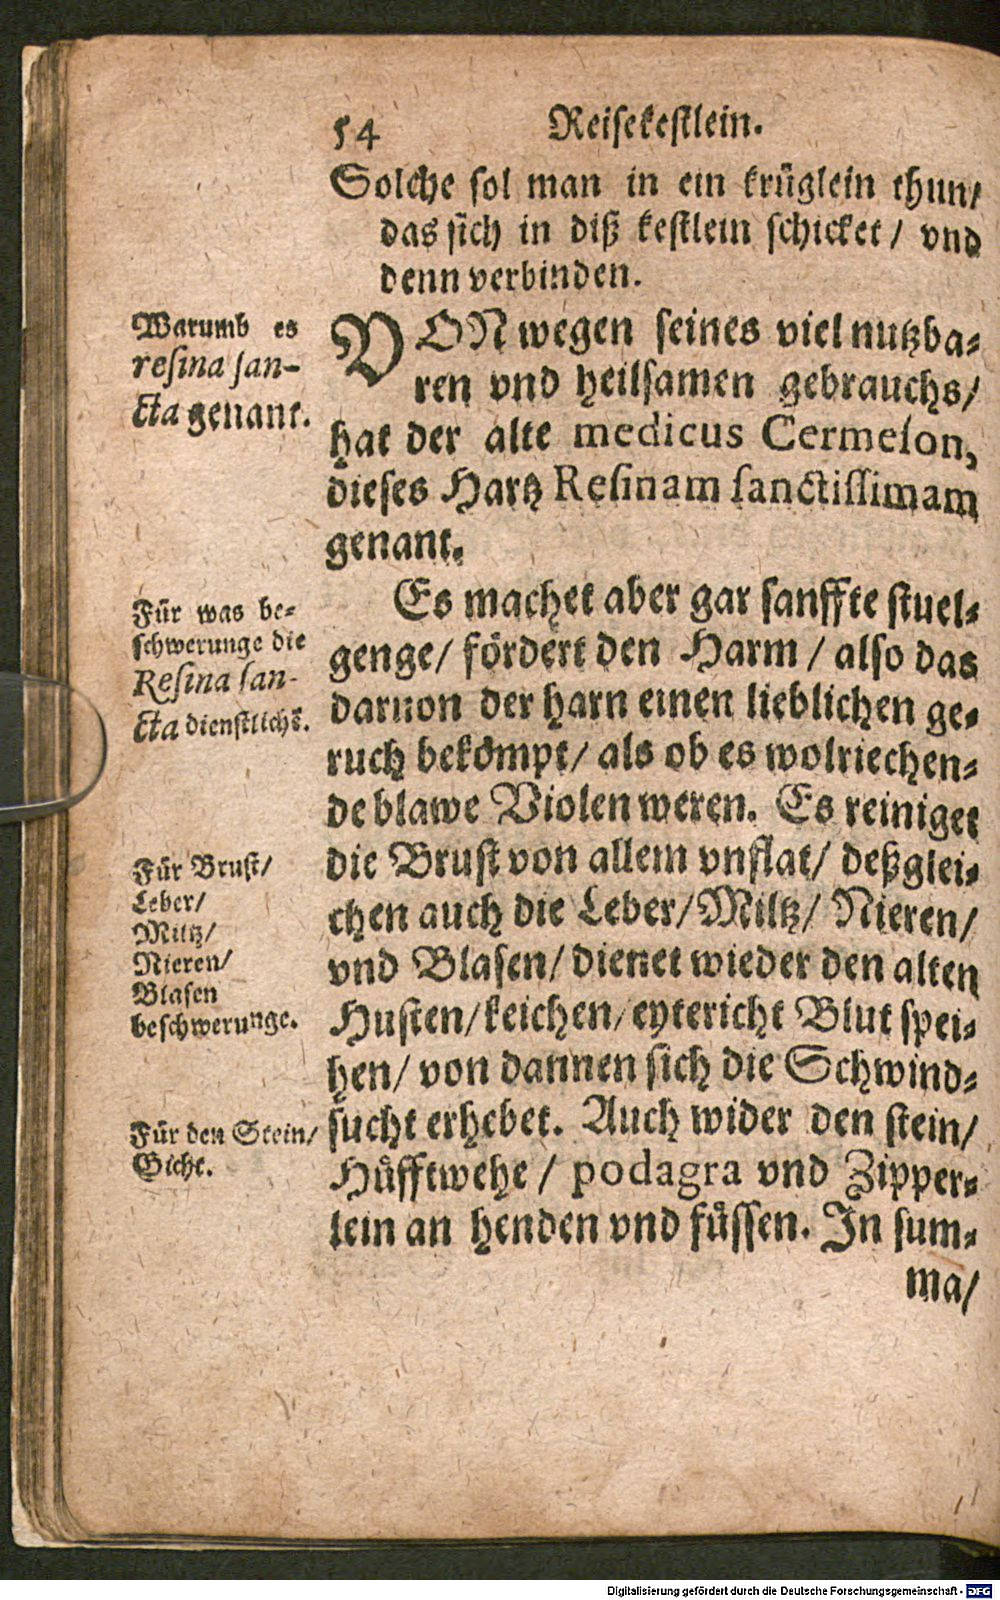 54 Reisekestlein.
Solche sol man in ein krüglein thun/
das sich in diß kestlein schicket / vnd
denn verbinden.
Warumb es
resina san-
cta genant.
VON wegen seines viel nutzba-
ren vnd heilsamen gebrauchs/
hat der alte medicus Cermeson,
dieses Hartz Resinam sanctissimam
genant.
Für was be-
schwerunge die
Resina san-
cta dienstlichē.
Es machet aber gar sanffte stuel-
genge/ fördert den Harm / also das
daruon der harn einen lieblichen ge-
ruch bekömpt/ als ob es wolriechen-
de blawe Violen weren. Es reiniget
die Brust von allem vnflat/ deßglei-
chen auch die Leber/ Miltz/ Nieren/
vnd Blasen/ dienet wieder den alten
Husten/ keichen/ eytericht Blut spei-
hen/ von dannen sich die Schwind-
sucht erhebet. Auch wider den stein/
Hüfftwehe / podagra vnd Zipper-
lein an henden vnd füssen. In sum-
ma/
Für Brust/
Leber/
Miltz/
Nieren/
Blasen
beschwerunge.
Für den Stein/
Gicht.
Digitalisierung gefördert durch die Deutsche Forschungsgemeinschaft - DFG